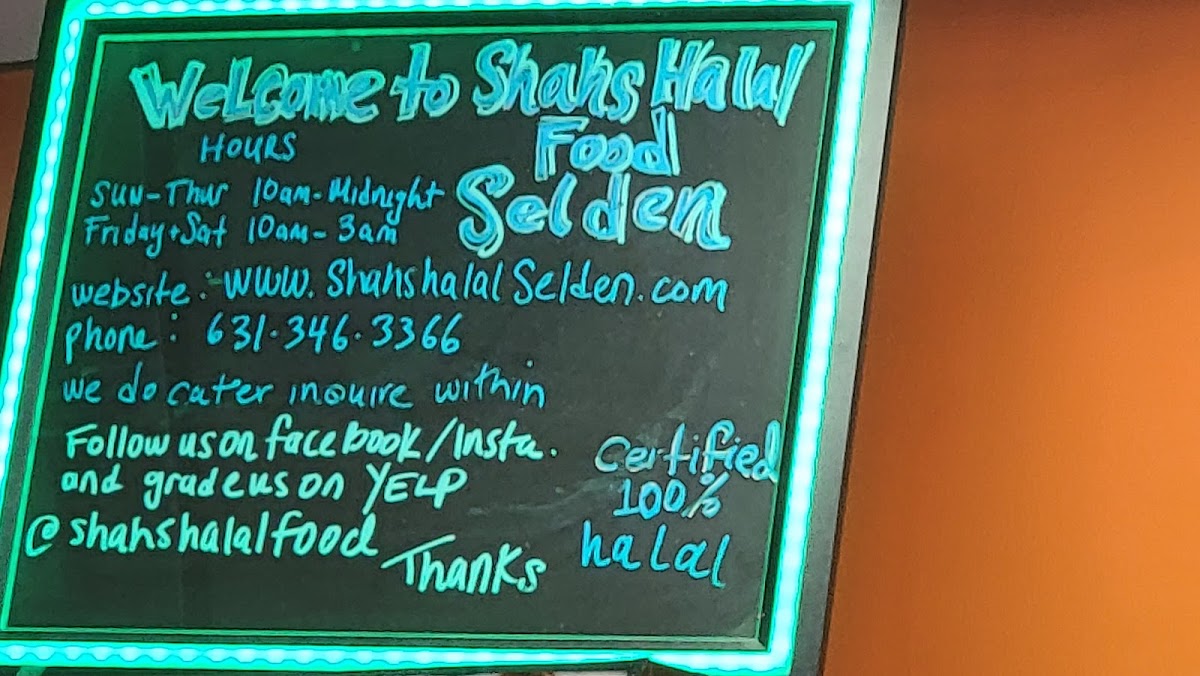 Welcome to Shahs Halal
Food
Selden
HOURS
Sun-Thur 10am-Midnight
Friday+Sat 10am-3am
website: www.ShahshalalSelden.com
phone: 631.346.3366
we do cater inquire within
Follow us on facebook/Insta.
and grade us on YELP
@shahshalalfood
Thanks
Certified
100%
halal